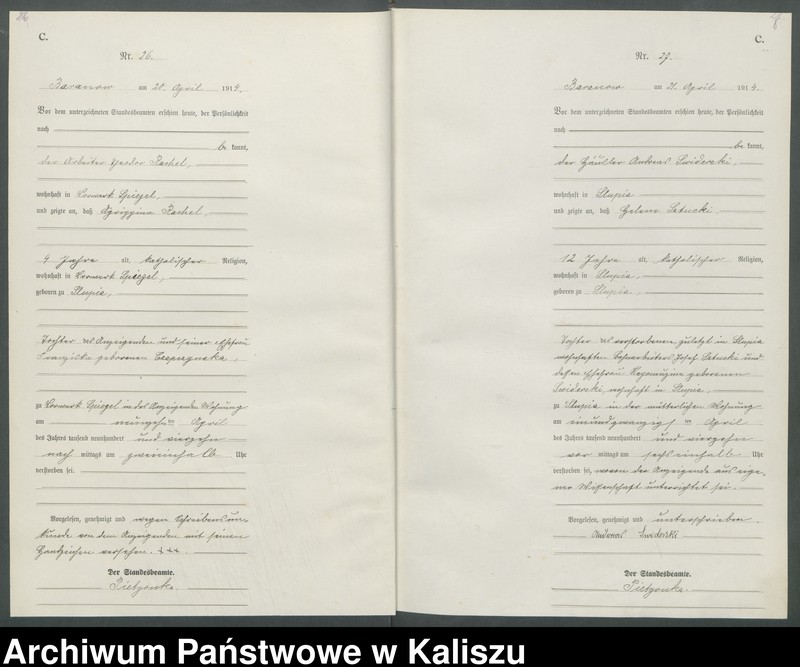 26
C.
Nr. 26.
Baranow am 20. April 1914.
Vor dem unterzeichneten Standesbeamten erschien heute, der Persönlichkeit
nach
be kannt,
der Arbeiter Rachel,
wohnhaft in Vorwerk Spiegel,
und zeigte an, daß Agrippina Rachel,
4 Jahre alt, katholischer Religion,
wohnhaft in Vorwerk Spiegel,
geboren zu Slupia,
Tochter des Anzeigenden und seiner Ehefrau
Franziska geborenen
zu Vorwerk Spiegel in des Anzeigenden Wohnung
am neunzehnten April
des Jahres tausend neunhundert und vierzehn
nach mittags um zweieinhalb Uhr
verstorben sei.
Vorgelesen, genehmigt und wegen Schreibensun-
kunde von dem Anzeigenden mit seinem
Handzeichen versehen. +++
Der Standesbeamte.
Pietzonka.
C.
Nr. 27.
Baranow am 21. April 1914.
Vor dem unterzeichneten Standesbeamten erschien heute, der Persönlichkeit
nach
be kannt,
der Häusler Andreas Swiderski,
wohnhaft in Slupia
und zeigte an, daß Helene Satucki,
12 Jahre alt, katholischer Religion,
wohnhaft in Slupia,
geboren zu Slupia,
Tochter des verstorbenen, zuletzt in Slupia
wohnhaften Josef Satucki und
dessen Ehefrau geborenen
Swiderski, wohnhaft in Slupia,
zu Slupia in der mütterlichen Wohnung
am einundzwanzigsten April
des Jahres tausend neunhundert und vierzehn
vor mittags um sechseinhalb Uhr
verstorben sei, wovon der Anzeigende aus eige-
ner Wissenschaft unterrichtet sei.
Vorgelesen, genehmigt und unterschrieben.
Andreas Swiderski
Der Standesbeamte.
Pietzonka.
Archiwum Państwowe w Kaliszu